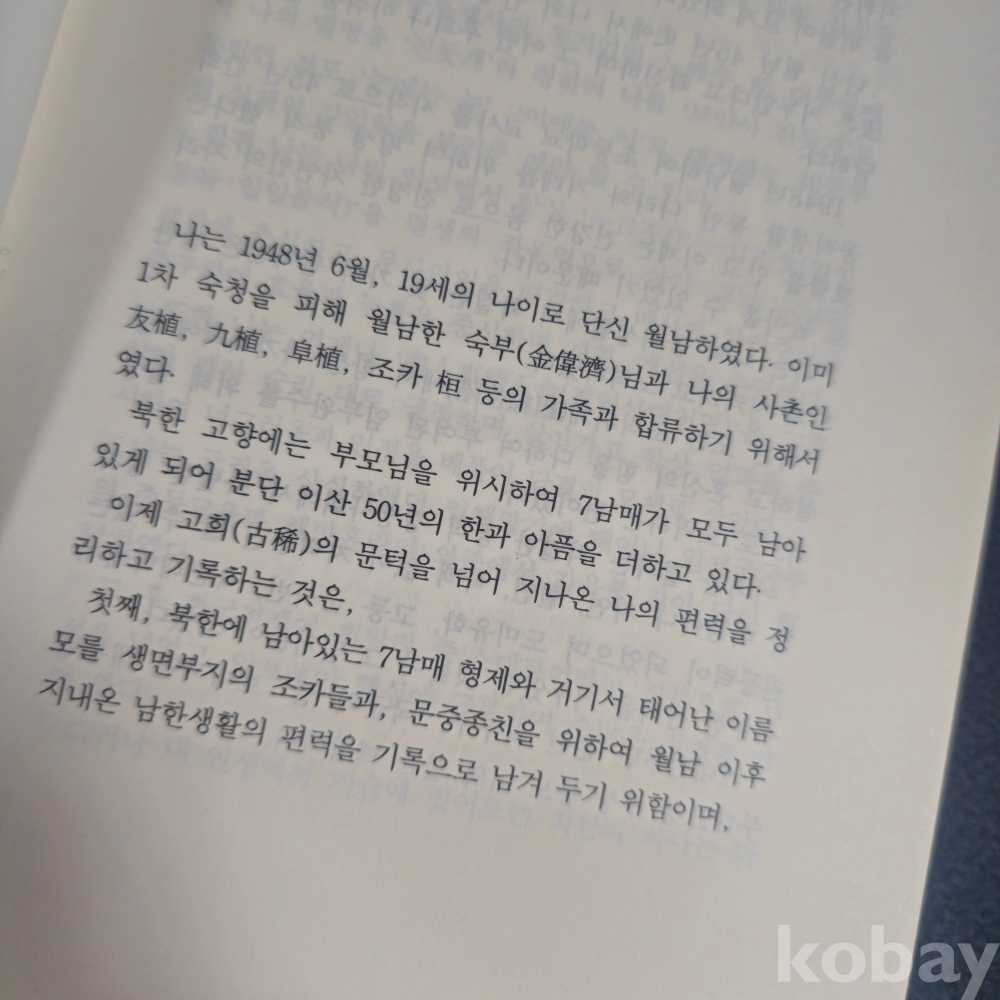 나는 1948년 6월, 19세의 나이로 단신 월남하였다. 이미
1차 숙청을 피해 월남한 숙부(金偉濟)님과 나의 사촌인
友植, 九植, 阜植, 조카 桓 등의 가족과 합류하기 위해서
였다.
북한 고향에는 부모님을 위시하여 7남매가 모두 남아
있게 되어 분단 이산 50년의 한과 아픔을 더하고 있다.
이제 고희(古稀)의 문턱을 넘어 지나온 나의 편력을 정
리하고 기록하는 것은,
첫째, 북한에 남아있는 7남매 형제와 거기서 태어난 이름
모를 생면부지의 조카들과, 문중종친을 위하여 월남 이후
지내온 남한생활의 편력을 기록으로 남겨 두기 위함이며,
kobay